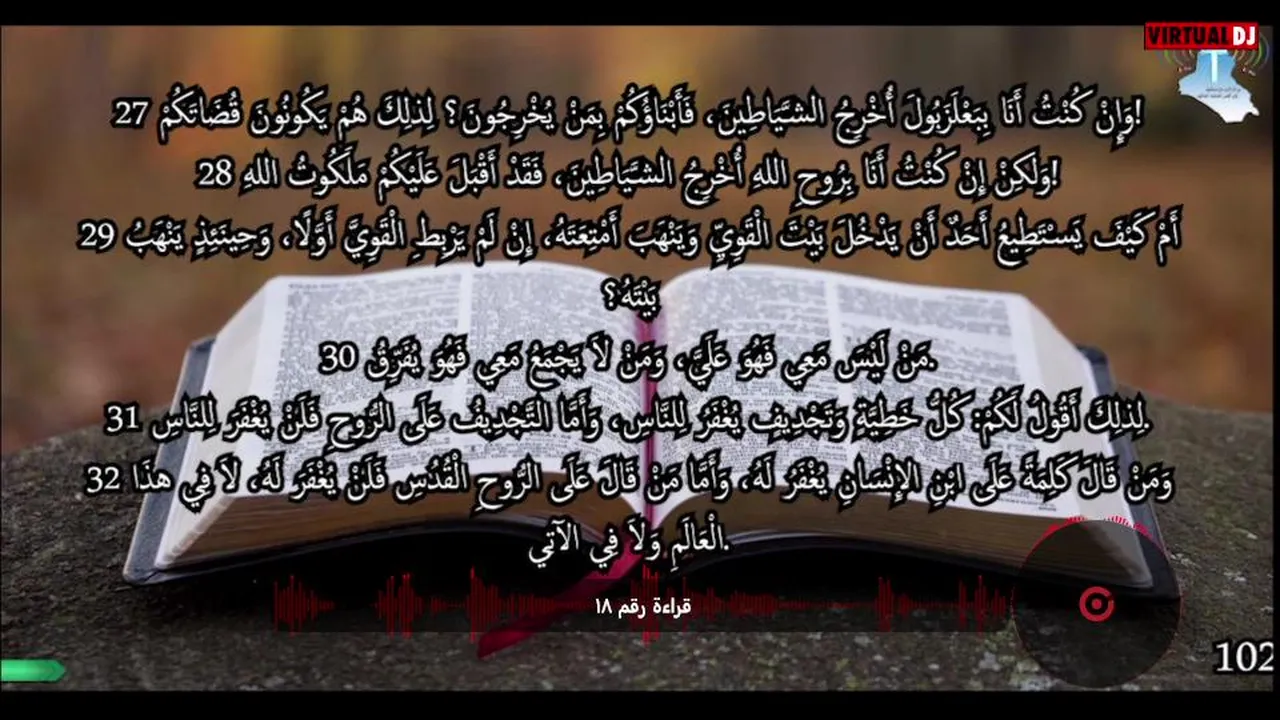 VIRTUAL DJ
27 وَإِنْ كُنْتُ أَنَا بِبَعْلَزَبُولَ أُخْرِجُ الشَّيَاطِينَ، فَأَبْنَاؤُكُمْ بِمَنْ يُخْرِجُونَ؟ لِذلِكَ هُمْ يَكُونُونَ قُضَاتَكُمْ!
28 وَلكِنْ إِنْ كُنْتُ أَنَا بِرُوحِ اللهِ أُخْرِجُ الشَّيَاطِينَ، فَقَدْ أَقْبَلَ عَلَيْكُمْ مَلَكُوتُ اللهِ!
29 أَمْ كَيْفَ يَسْتَطِيعُ أَحَدٌ أَنْ يَدْخُلَ بَيْتَ الْقَوِيِّ وَيَنْهَبَ أَمْتِعَتَهُ، إِنْ لَمْ يَرْبِطِ الْقَوِيَّ أَوَّلًا، وَحِينَئِذٍ يَنْهَبُ
بَيْتَهُ؟
30 مَنْ لَيْسَ مَعِي فَهُوَ عَلَيَّ، وَمَنْ لاَ يَجْمَعُ مَعِي فَهُوَ يُفَرِّقُ.
31 لِذلِكَ أَقُولُ لَكُمْ: كُلُّ خَطِيَّةٍ وَتَجْدِيفٍ يُغْفَرُ لِلنَّاسِ، وَأَمَّا التَّجْدِيفُ عَلَى الرُّوحِ فَلَنْ يُغْفَرَ لِلنَّاسِ.
32 وَمَنْ قَالَ كَلِمَةً عَلَى ابْنِ الإِنْسَانِ يُغْفَرُ لَهُ، وَأَمَّا مَنْ قَالَ عَلَى الرُّوحِ الْقُدُسِ فَلَنْ يُغْفَرَ لَهُ، لاَ فِي هذَا
الْعَالَمِ وَلاَ فِي الآتِي.
قراءة رقم ١٨
102